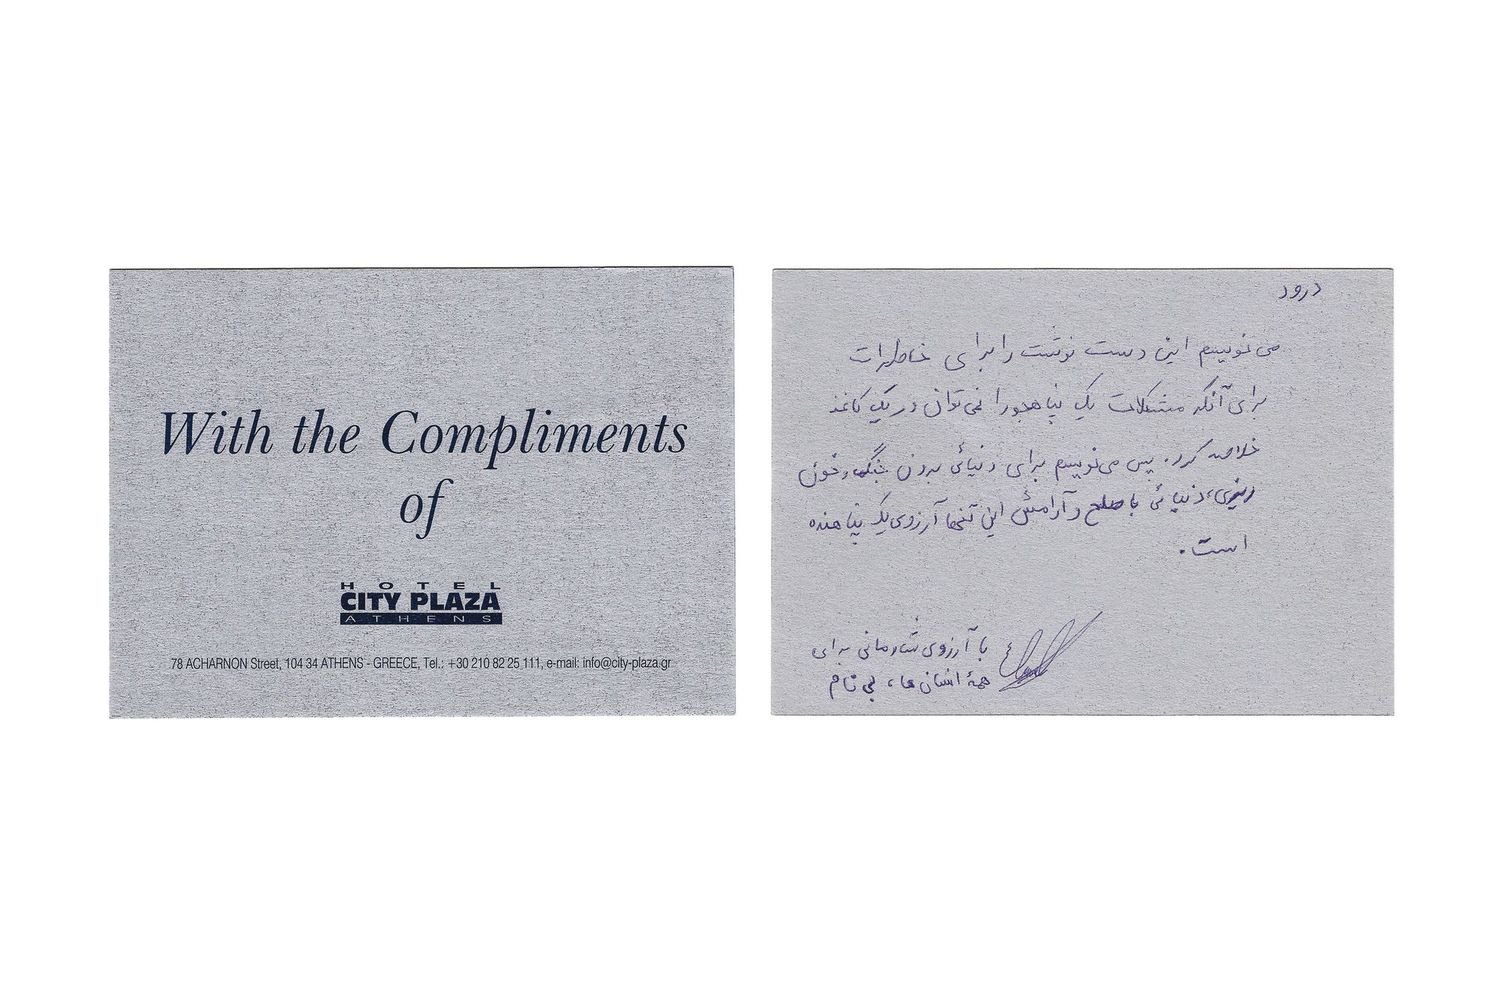 With the Compliments
of
HOTEL
CITY PLAZA
ATHENS
78 ACHARNON Street, 104 34 ATHENS - GREECE, Tel.: +30 210 82 25 111, e-mail: info@city-plaza.gr
درود
می نویسم این دست نوشت را برای خاطرات
برای آنکه مشکلات یک پناهجو را نمی توان در یک کاغذ
خلاصه کرد. پس می نویسم برای دنیائی بدون جنگ و خون
ریزی، دنیائی با صلح و آرامش این تنها آرزوی یک پناهنده
است.
با آرزوی شادمانی برای
همهٔ انسان ها، بی نام